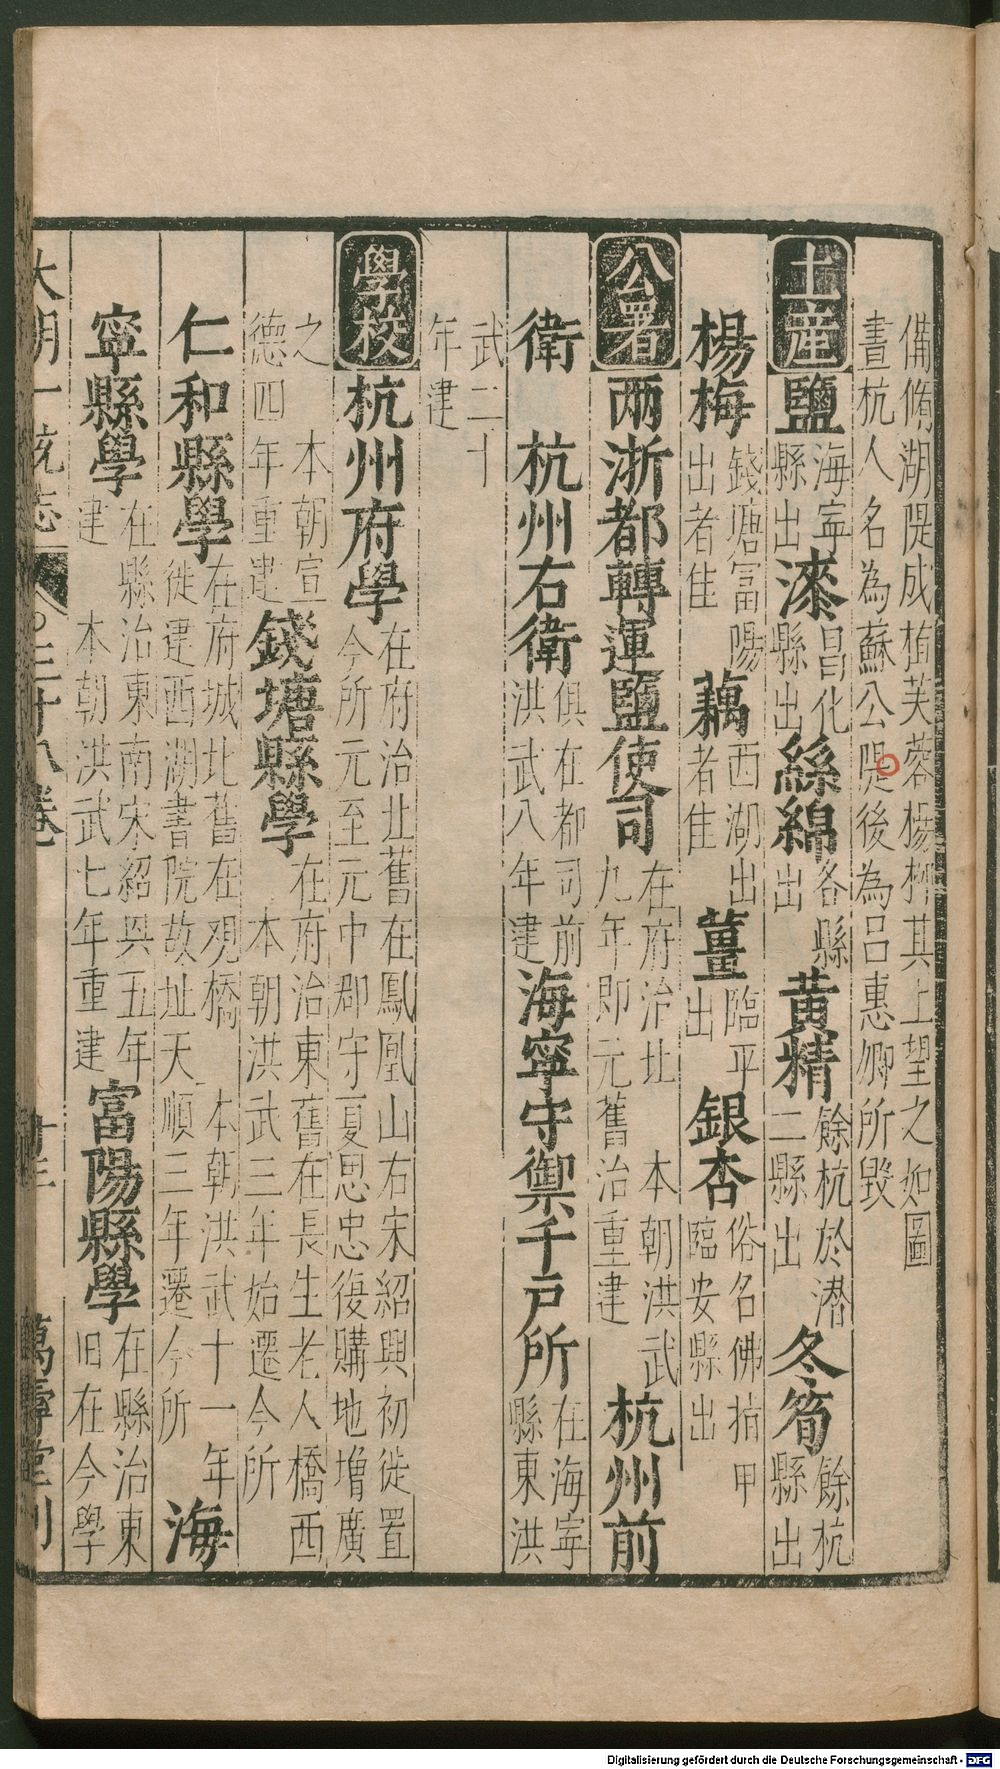 備脩湖隄成植芙蓉楊柳其上望之如圖
畫杭人名為蘇公隄後為呂惠卿所毀
土産 鹽 海寧縣出 漆 昌化縣出 絲綿 各縣出 黃精 餘杭於潛二縣出 冬筍 餘杭縣出
楊梅 錢塘冨陽出者佳 藕 西湖出者佳 薑 臨平出 銀杏 俗名佛指甲臨安縣出
公署 兩浙都轉運鹽使司 在府治北 本朝洪武九年即元舊治重建 杭州前
衛 杭州右衛 俱在都司前洪武八年建 海寧守禦千戶所 在海寧縣東洪
武二十年建
學校 杭州府學 在府治北舊在鳳凰山右宋紹興初徙置今所元至元中郡守夏思忠復購地増廣
之 本朝宣德四年重建 錢塘縣學 在府治東舊在長生老人橋西 本朝洪武三年始遷今所
仁和縣學 在府城北舊在观橋 本朝洪武十一年徙建西湖書院故址天順三年遷今所 海
寧縣學 在縣治東南宋紹興五年建 本朝洪武七年重建 富陽縣學 在縣治東旧在今學
大明一統志 三十八卷 萬壽堂刊
Digitalisierung gefördert durch die Deutsche Forschungsgemeinschaft - DFG